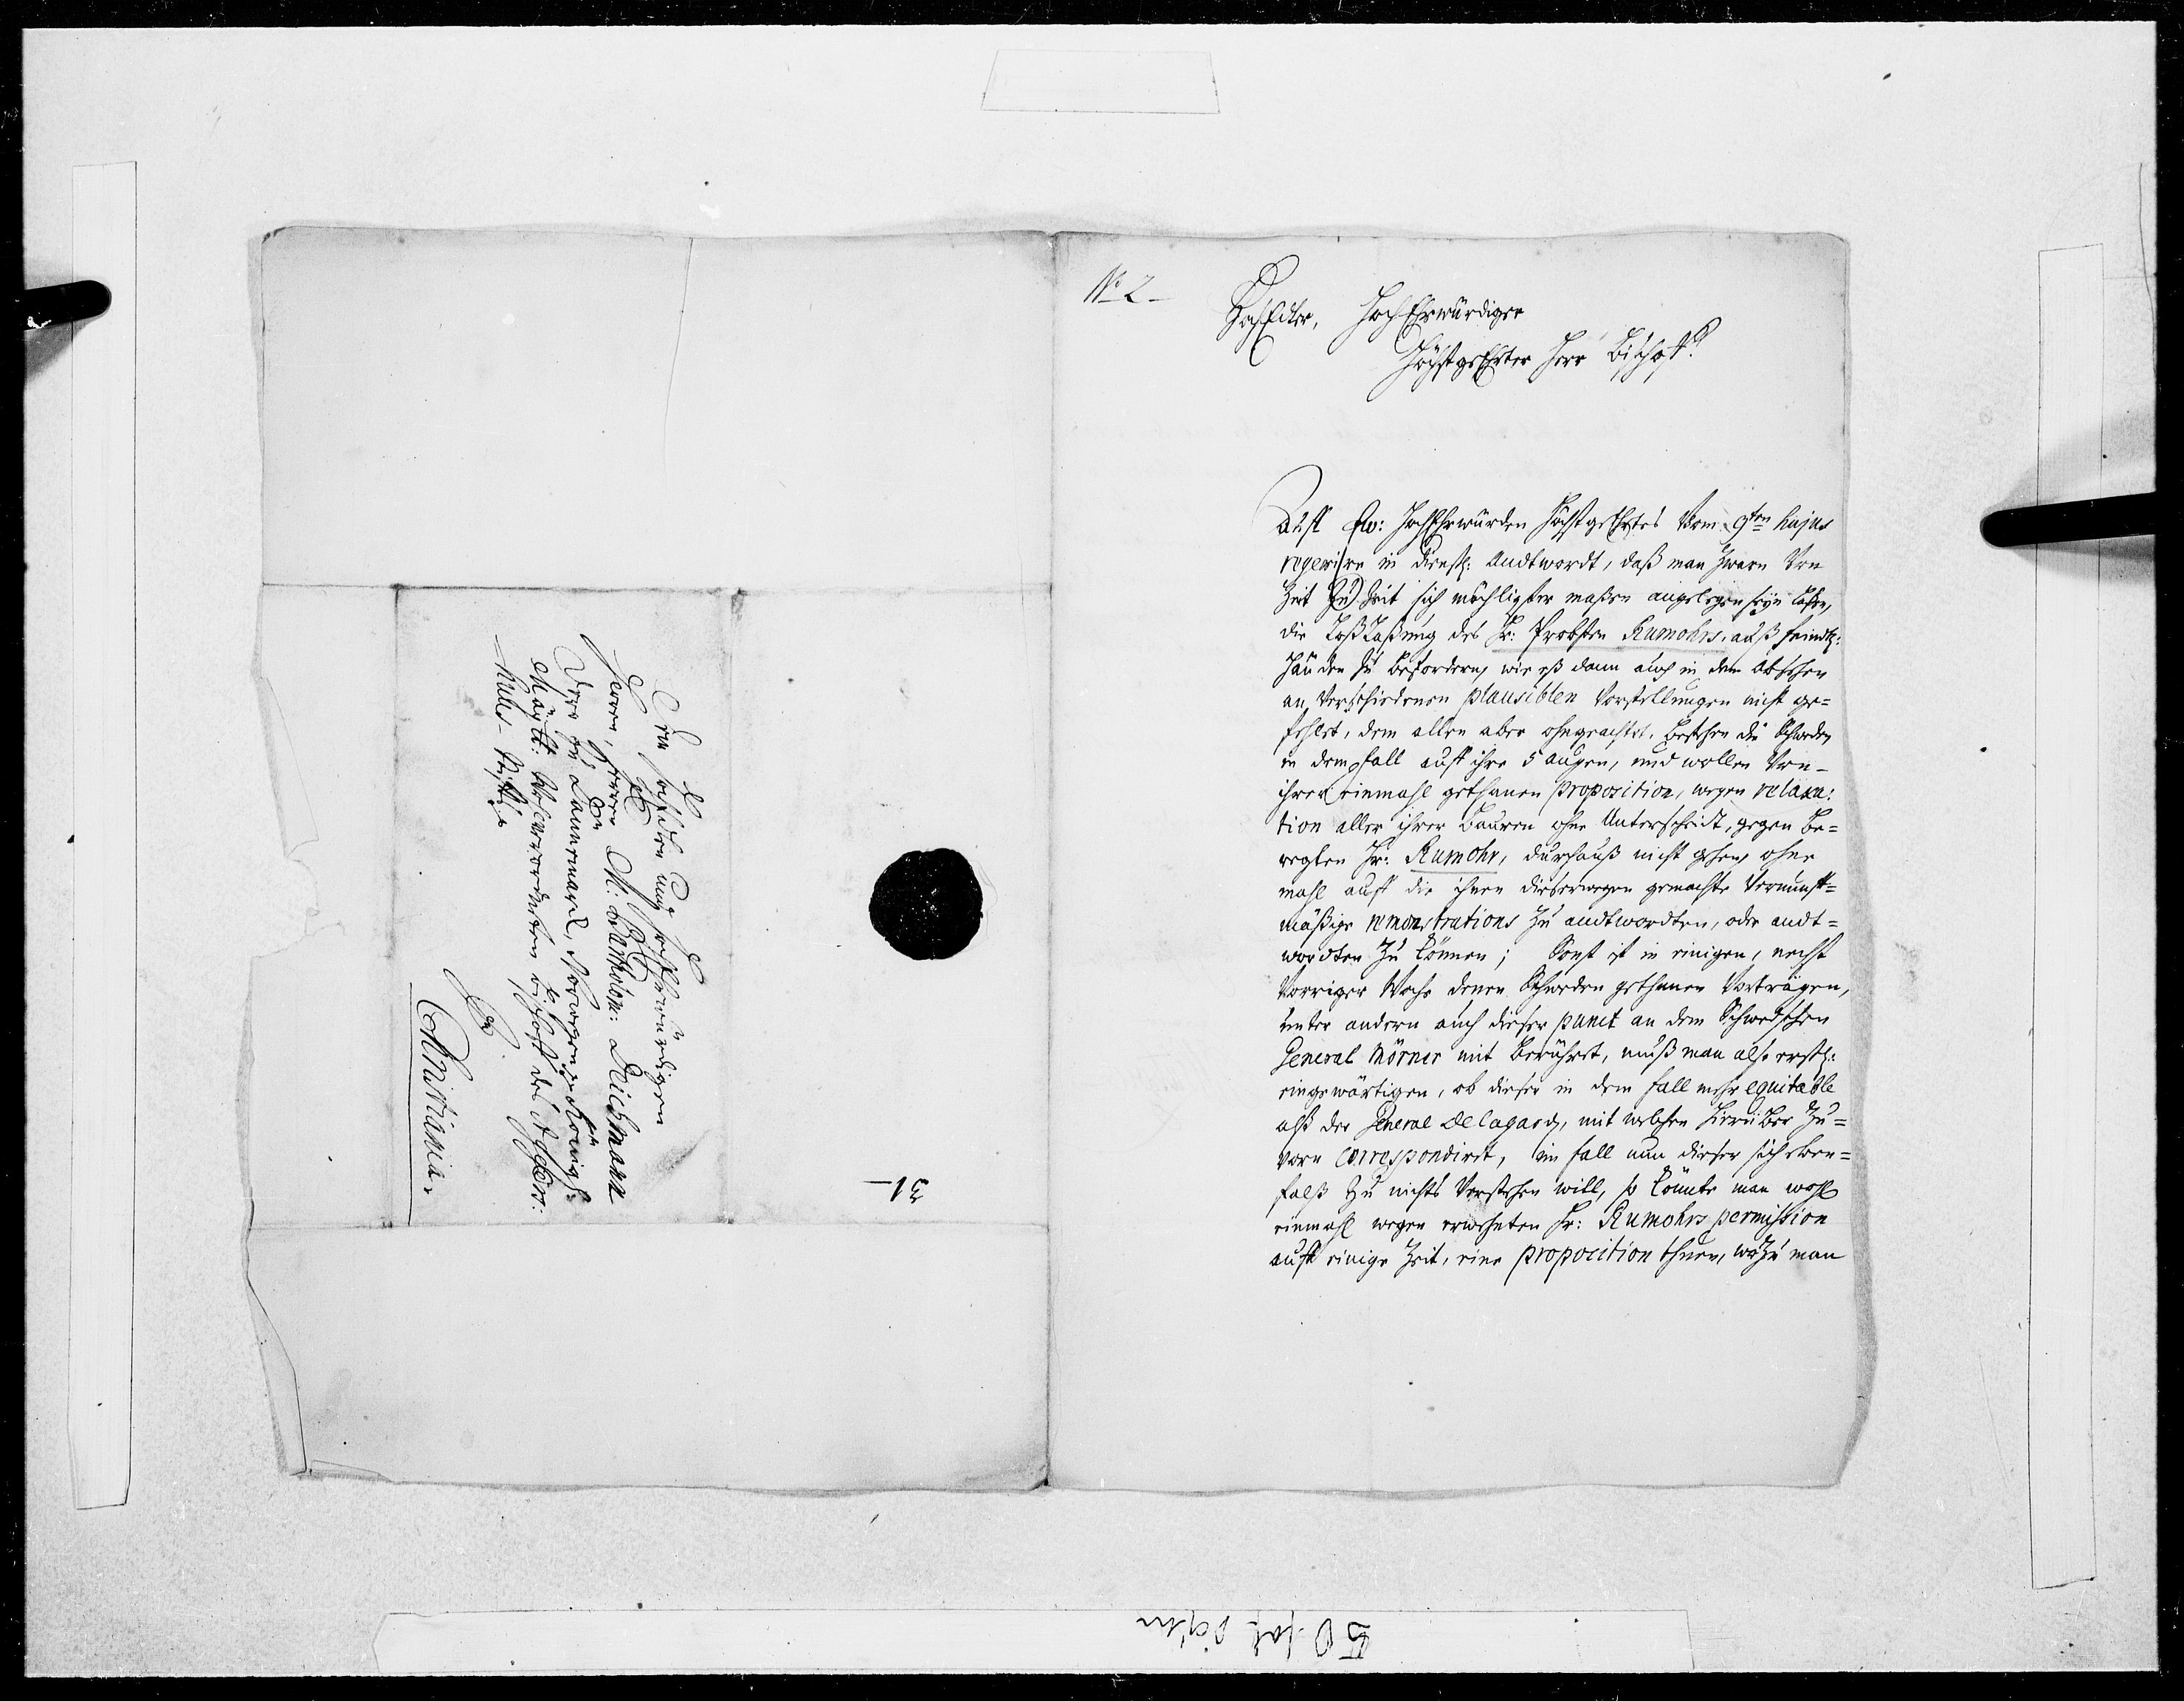 No 2
HochEdler, HochEhrwürdiger
HöchstgeEhrter Herr Bischoff
Auff Ew: HochEhrwürden HöchstgeEhrtes Vom 9ten hujus
regerire in dienstl: Andtwordt, daß man zwarn Von
Zeit Zu Zeit sich mögligster maßen angelegen seyn laßen,
die Loßlaßung des Hr: Probsten Rumohrs, auß feindtl:
Händen zu befordern, wie eß dann auch in dem Absehen
an Verschiedenen plausiblen Vorstellungen nicht ge=
fehlet, dem allen aber ohngeachtet, bestehen die Schweden
in dem fall auff ihre 5 augen, und wollen Von
ihrer einmahl gethanen proposition, wegen relaxa:
tion aller ihrer Bauren ohne Unterscheidt, gegen be=
regten Hr: Rumohr, durchauß nicht gehen, ohne
mahl auff die ihnen dieserwegen gemachte Vernunfft=
mäßige remonstrations zu andtwordten, oder andt=
wordten zu können; Sonst ist in einigen, nechst
Vorriger Woche denen Schweden gethanen Vorträgen,
unter andern auch dieser punct an dem Schwedschen
General Mörner mit berühret, muß man also erstl:
eingewärtigen, ob dieser in dem fall mehr equitable
alß der General Delagard, mit welchen hierüber zu=
vorn correspondiret, im fall nun dieser sich eben=
falß zu nichts Verstehen will, so könnte man wohl
einmahl wegen erwehnten Hr: Rumohrs permission
auff einige Zeit, eine proposition thuen, wozu man
Dem HochEdlen und HochEhrwürdigen
Herrn, Herrn M: Bartholom: Deichmann
Dero zu Dännemarck, Norwegen Königl:
Mäytt: Wohlverordneten Bischoff des Aggers:
Huus-Stiffts
Christiania.
31
50